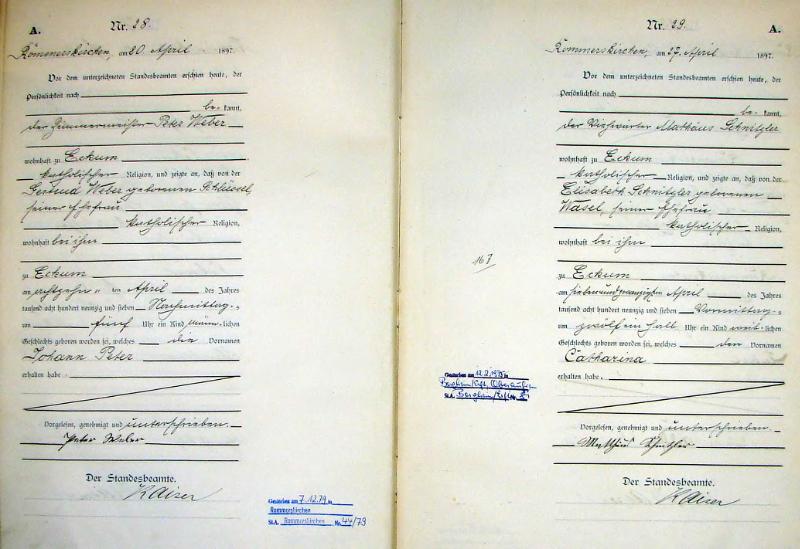 A. Nr. 28
Rommerskirchen, am 20 April 1897.
Vor dem unterzeichneten Standesbeamten erschien heute, der
Persönlichkeit nach
be- kannt,
der Zimmermeister Peter Weber
wohnhaft zu Eckum
katholischer Religion, und zeigte an, daß von der
Gertrud Weber geborenen Schlössel
seiner Ehefrau
katholischer Religion,
wohnhaft bei ihm
zu Eckum
am achtzehn ten April des Jahres
tausend acht hundert neunzig und sieben Nachmittag-s
um fünf Uhr ein Kind männ-lichen
Geschlechts geboren worden sei, welches die Vornamen
Johann Peter
erhalten habe.
Vorgelesen, genehmigt und unterschrieben
Peter Weber
Der Standesbeamte.
Kaiser
Gestorben am 7.12.79 in
Rommerskirchen
StA. Rommerskirchen Nr. 44/79
Nr. 29 A.
Rommerskirchen, am 27 April 1897.
Vor dem unterzeichneten Standesbeamten erschien heute, der
Persönlichkeit nach
be- kannt,
der Mathäus Schnitzler
wohnhaft zu Eckum
katholischer Religion, und zeigte an, daß von der
Elisabeth Schnitzler geborenen
Wasel, seiner Ehefrau
katholischer Religion,
wohnhaft bei ihm
zu Eckum
am siebenundzwanzigsten April des Jahres
tausend acht hundert neunzig und sieben Vormittag-s
um zwölfeinhalb Uhr ein Kind weib-lichen
Geschlechts geboren worden sei, welches den Vornamen
Catharina
erhalten habe.
Vorgelesen, genehmigt und unterschrieben
Der Standesbeamte.
Kaiser
Gestorben am in
StA.